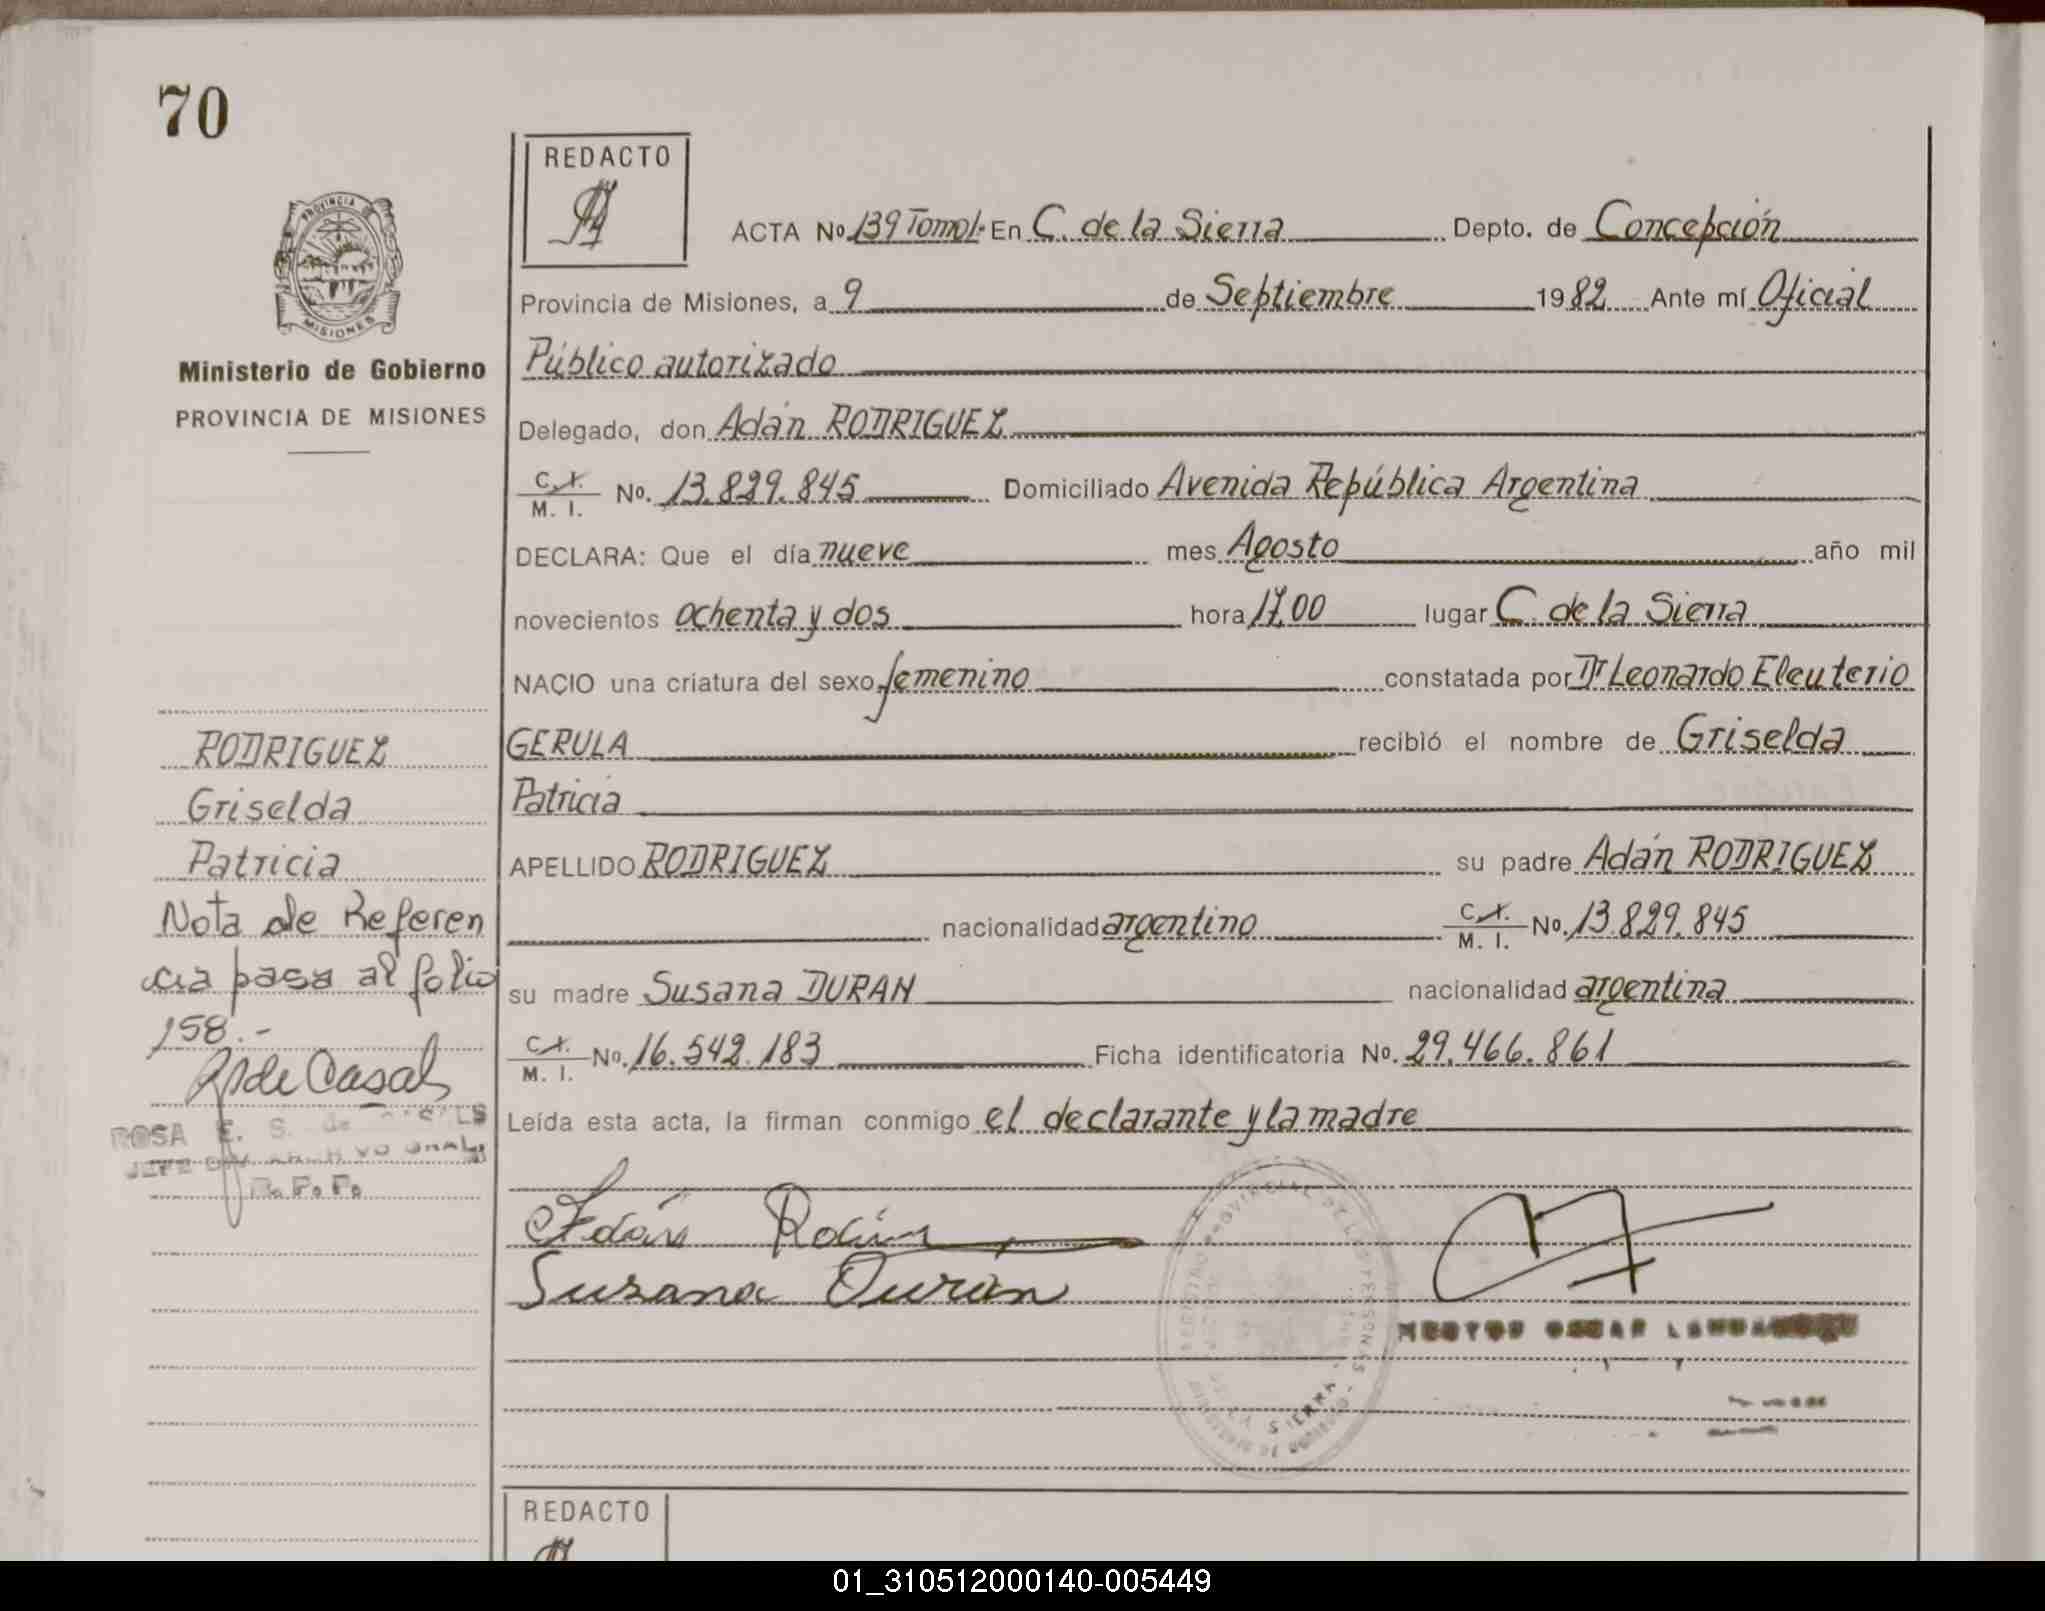 70
REDACTO
PROVINCIA
MISIONES
Ministerio de Gobierno
PROVINCIA DE MISIONES
ACTA No 139 Tomo I. En C. de la Sierra Depto. de Concepción
Provincia de Misiones, a 9 de Septiembre 1982 Ante mí Oficial
Público autorizado
Delegado, don Adán RODRIGUEZ
C. I. M. I. No. 13.829.845 Domiciliado Avenida República Argentina
DECLARA: Que el día nueve mes Agosto año mil
novecientos ochenta y dos hora 17,00 lugar C. de la Sierra
NACIO una criatura del sexo femenino constatada por Dr Leonardo Eleuterio
GERULA recibió el nombre de Griselda
Patricia
APELLIDO RODRIGUEZ su padre Adán RODRIGUEZ
nacionalidad argentino C. I. M. I. No. 13.829.845
su madre Susana DURAN nacionalidad argentina
C. I. M. I. No. 16.542.183 Ficha identificatoria No. 29.466.861
Leída esta acta, la firman conmigo el declarante y la madre
RODRIGUEZ
Griselda
Patricia
Nota de Referen
cia pasa al folio
158.-
R S de Casals
ROSA E. S. de
Adán
Susana Durán
SIERRA
REDACTO
01_310512000140-005449